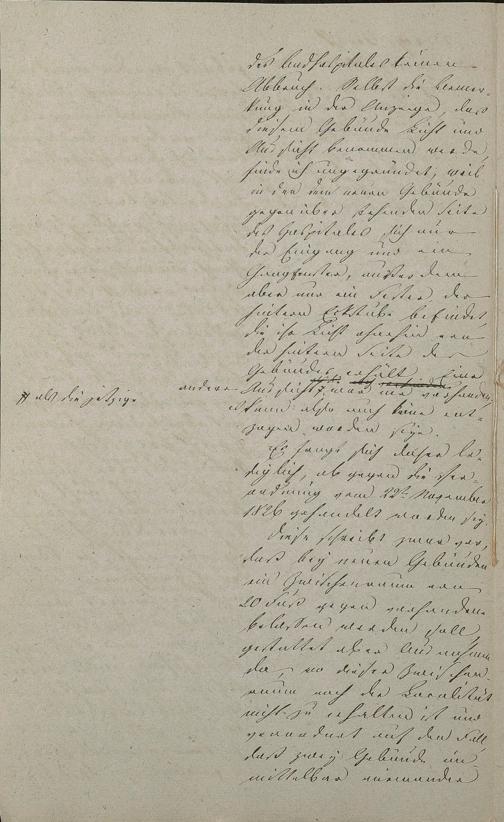 des Badhospitales keinen
Abbruch. Selbst die Bemer-
kung in der Anzeige, daß
diesem Gebäude Licht und
Aussicht benommen werde,
finde ich ungegründet, weil
in der dem neuen Gebäude
gegenüber stehenden Seite
des Hospitales sich nur
der Eingang und ein
Gangfenster, außerdem
aber nur ein Fenster der
hintern Eckstube befindet
die ihr Licht ohnehin von
der hintern Seite des
Gebäudes erhält. Eine
andere Aussicht war nie vorhanden,
# als die jetzige
kann also auch keine ent-
zogen worden seyn.
Es fragt sich daher le-
diglich, ob gegen die Ver-
ordnung vom 22t. November
1826 gehandelt worden sey.
Diese schreibt zwar vor,
daß bey neuen Gebäuden
ein Zwischenraum von
20 Fuß gegen vorhandene
belassen werden soll
gestattet aber Ausnahmen
da, wo dieser Zwischen-
raum nach der Localität
nicht zu erhalten ist und
verordnet auf den Fall
daß zwey Gebäude un-
mittelbar aneinander